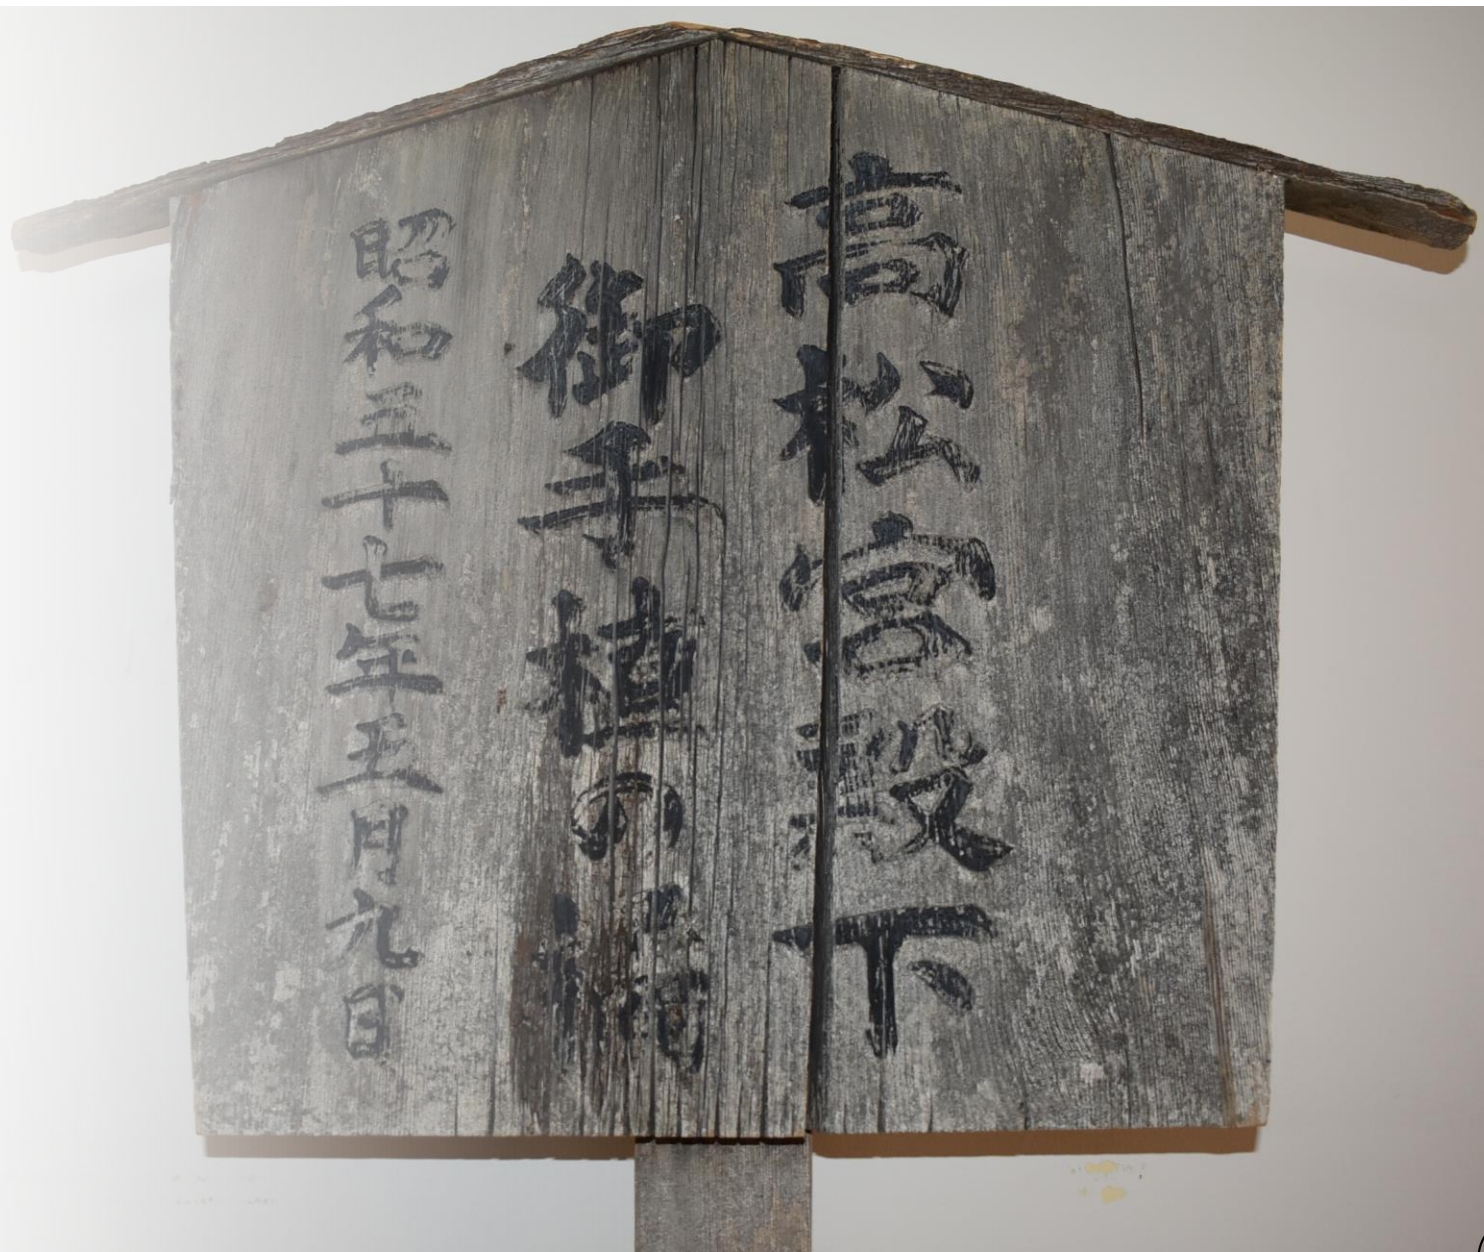 高松宮殿下
御手植の橘
昭和五十七年五月九日